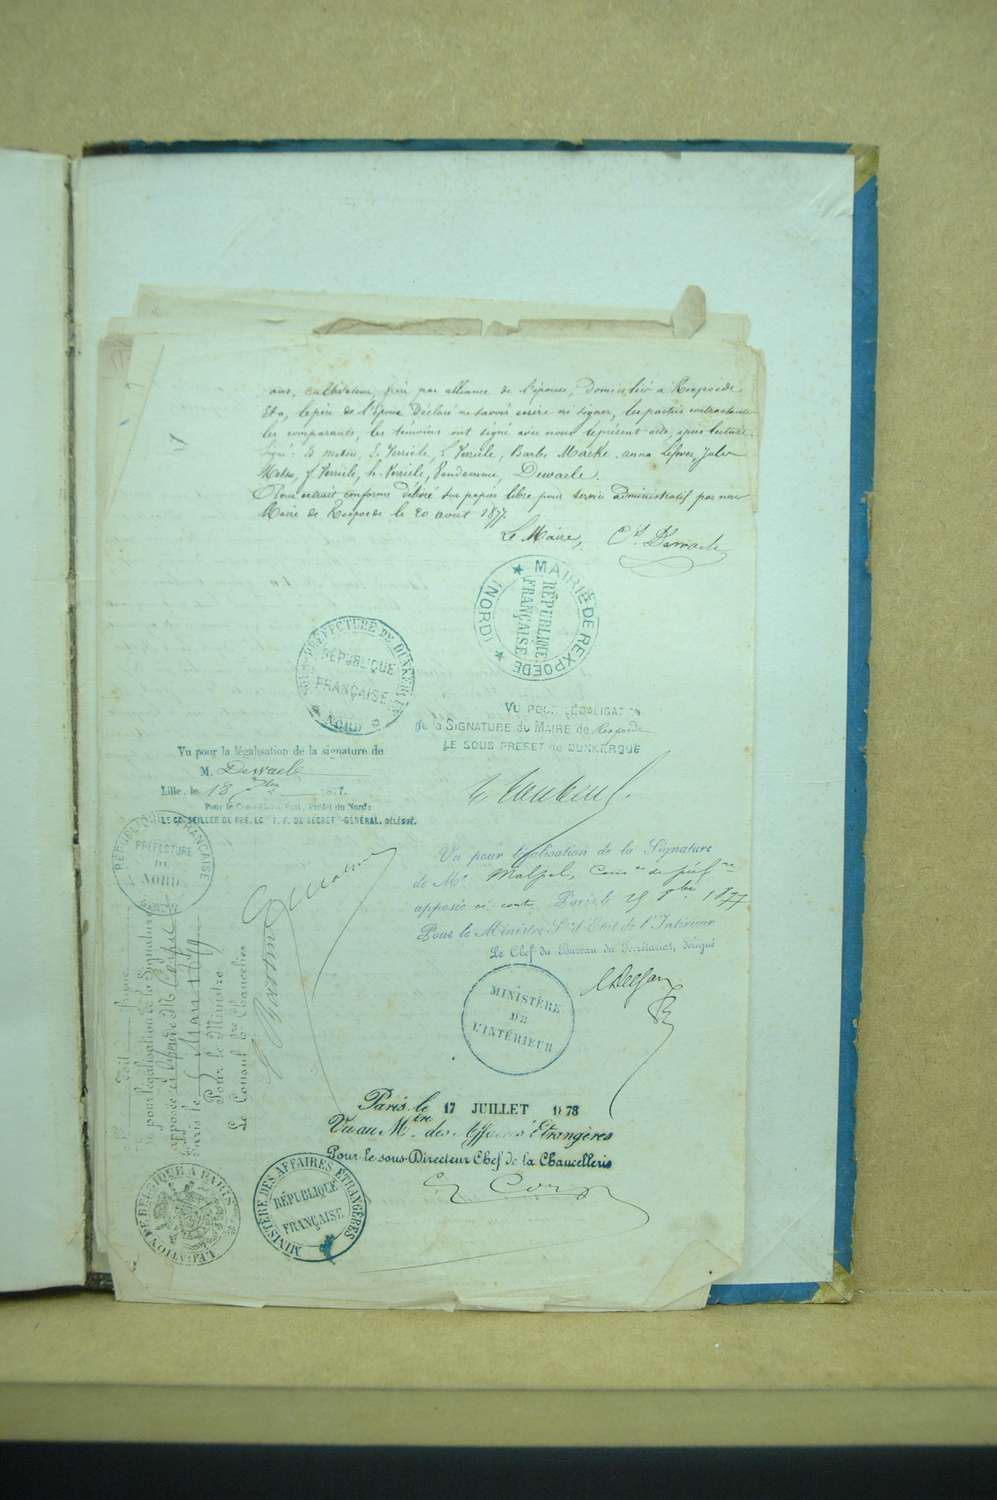 ans, cultivateur, frère par alliance de l'épouse, domicilié à Rexpoëde
Et a, le père de l'épouse Déclaré ne savoir écrire ni signer, les parties contractantes
les comparants, les témoins ont signé avec nous le présent acte, après lecture.
Signé: B. Verriele, L. Verriele, Barbe Marke, anna Lefever, Jules
Verriele, h. Verriele, Vandamme, Dewaele.
Pour extrait conforme délivré sur papier libre pour service administratif par nous
Maire de Rexpoede le 20 août 1877.
Le Maire,
MAIRIE DE REXPOËDE (NORD)
RÉPUBLIQUE FRANÇAISE
SOUS-PRÉFECTURE DE DUNKERQUE
RÉPUBLIQUE
FRANÇAISE
NORD
VU POUR LÉGALISATION
de la SIGNATURE du MAIRE de Rexpoëde
LE SOUS PRÉFET de DUNKERQUE
Vu pour la légalisation de la signature de
M. Dewaele
Lille, le 18 1877.
Pour le Préfet du Nord:
LE CONSEILLER DE PRÉFECTURE F. F. DE SECRÉTAIRE-GÉNÉRAL, DÉLÉGUÉ.
RÉPUBLIQUE FRANÇAISE
PRÉFECTURE
DU
NORD
Vu pour légalisation de la Signature
de Mr
apposée ci contre Paris le 25 1877
Pour le Ministre S.re d'Etat de l'Intérieur
Le Chef du Bureau du Secrétariat, délégué
MINISTÈRE
DE
L'INTÉRIEUR
Vu pour légalisation de la Signature
apposée ci dessus de M.
Paris le 5 Mars 1879
Pour le Ministre
Le Consul Chancelier
Paris le 17 JUILLET 1878
Vu au M.tère des Affaires Etrangères
Pour le sous-Directeur Chef de la Chancellerie
MINISTÈRE DES AFFAIRES ÉTRANGÈRES
RÉPUBLIQUE
FRANÇAISE
LÉGATION DE BELGIQUE À PARIS